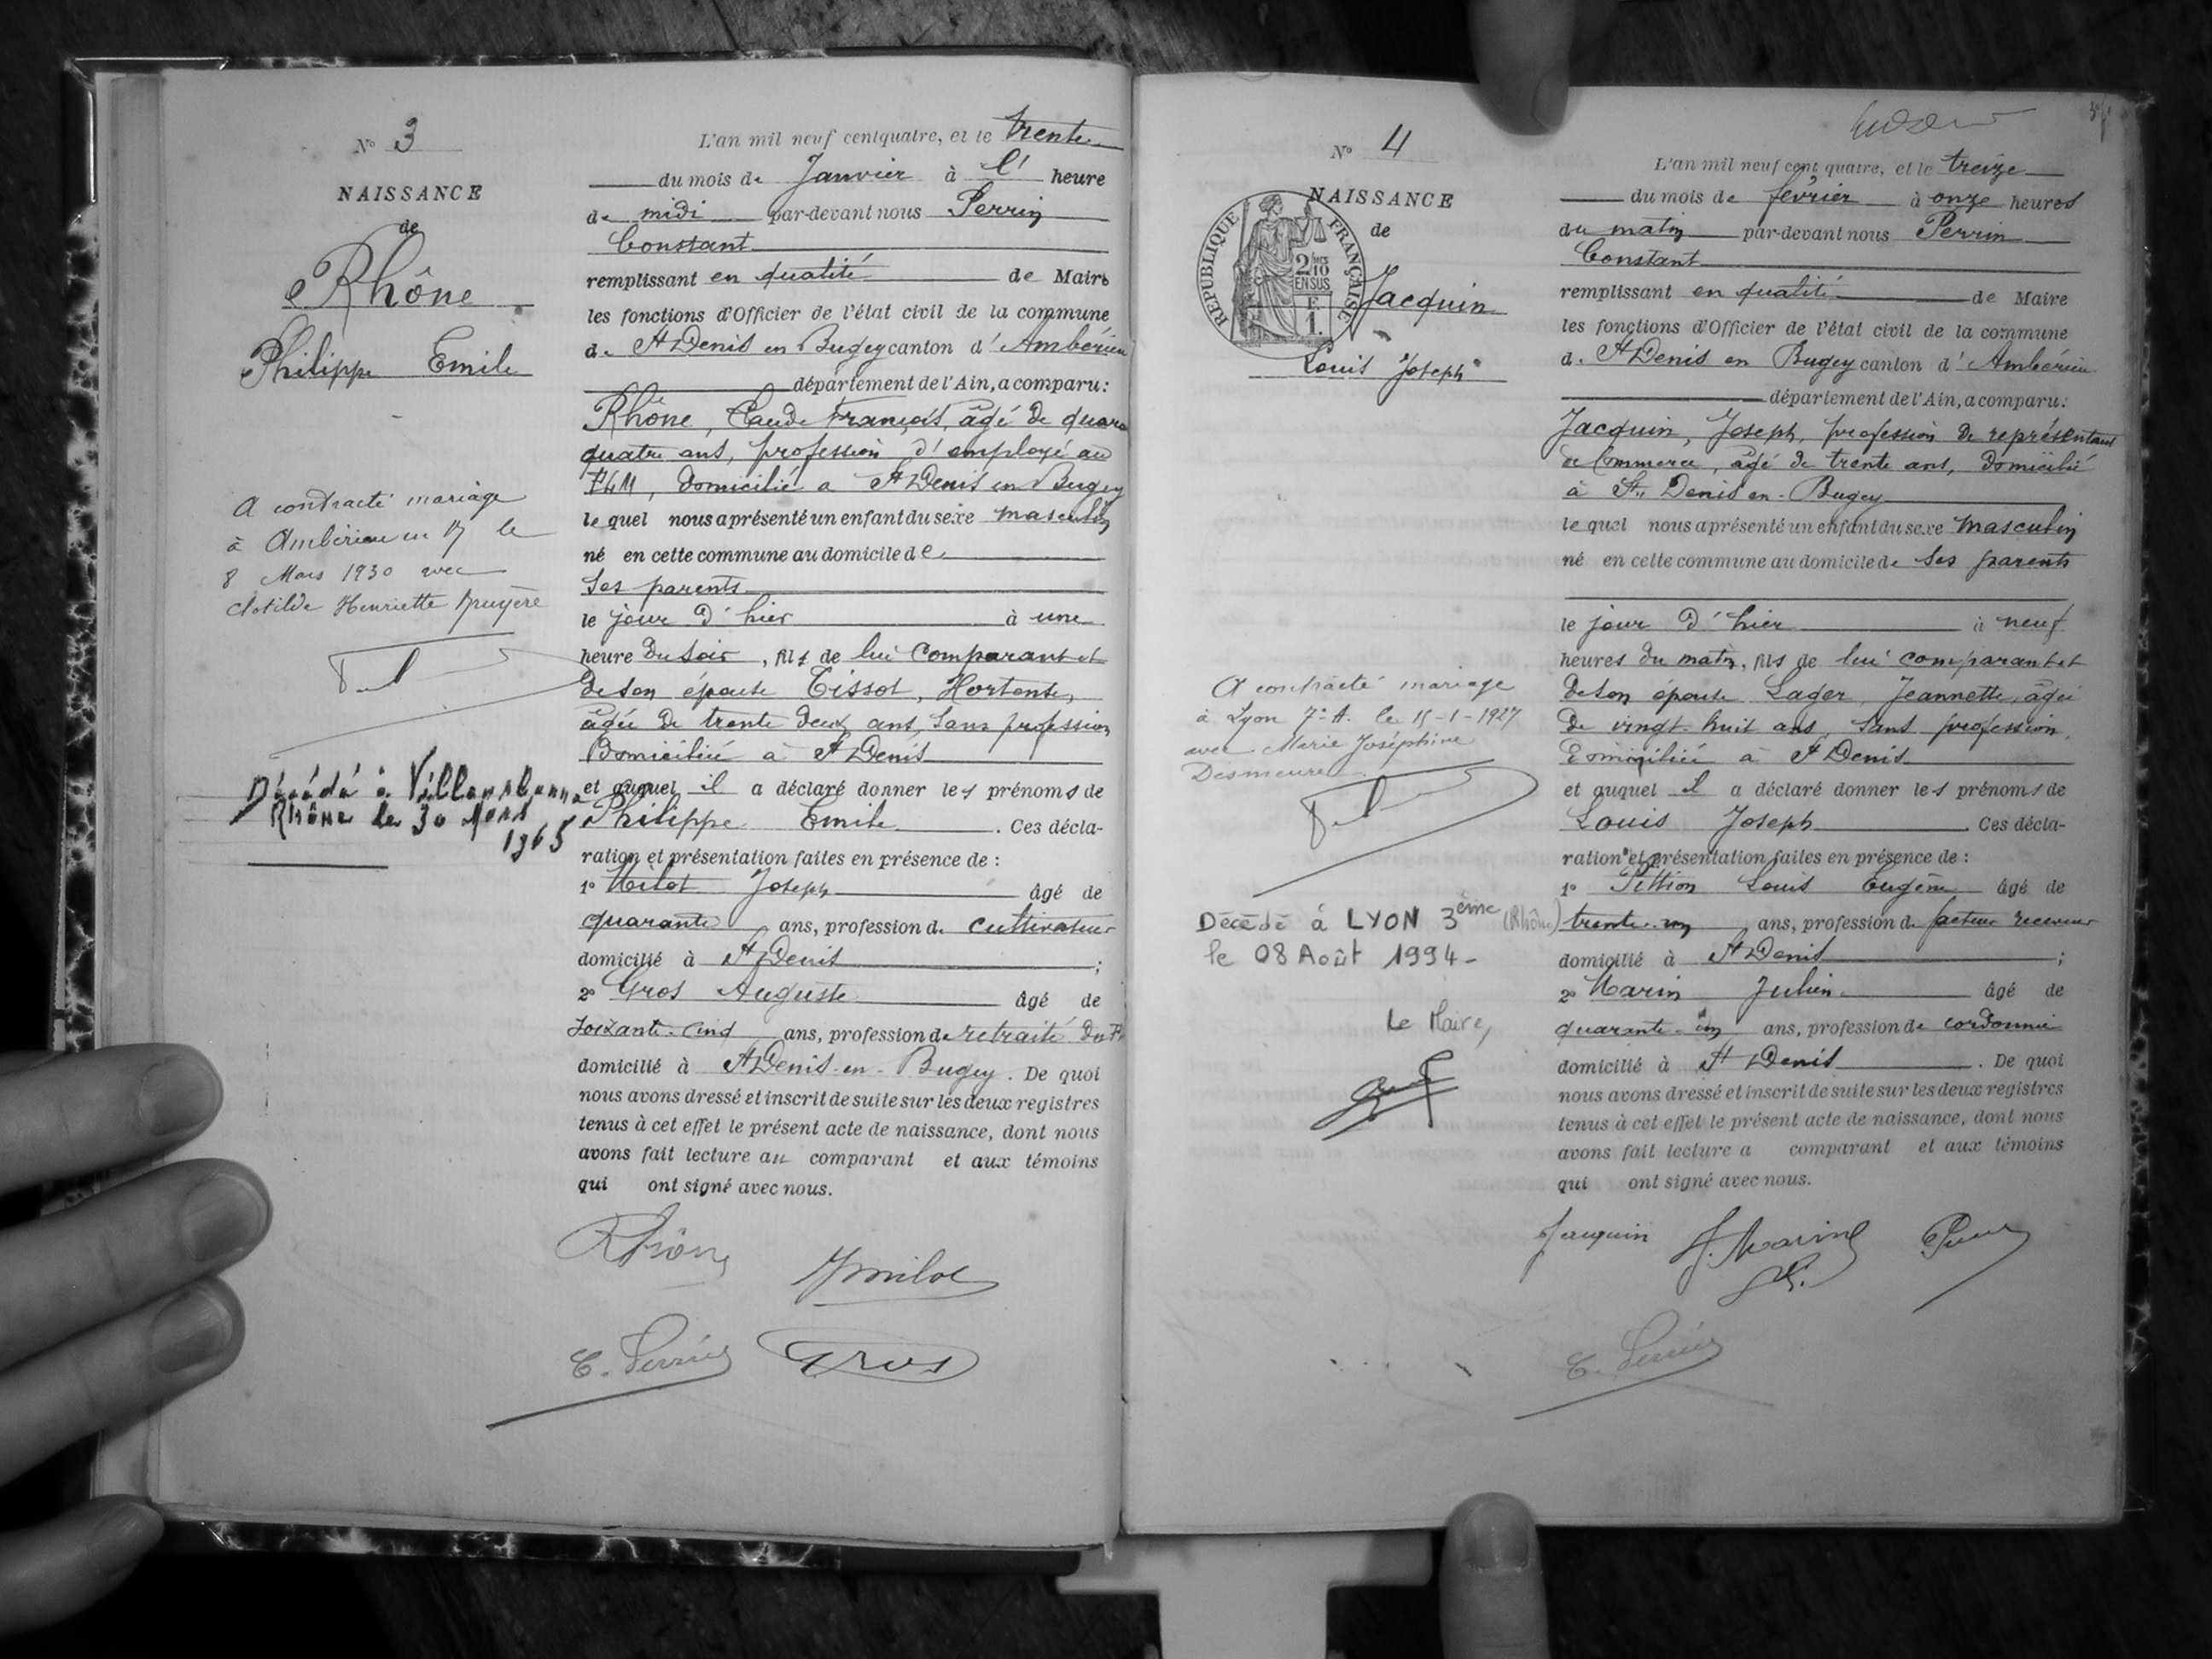 Nº 3
NAISSANCE
de
Rhône
Philippe Emile
A contracté mariage
à Ambérieu en B le
8 Mars 1930 avec
Clotilde Henriette Bruyère
Décédé à Villeurbanne
Rhône le 30 Mars
1965
L'an mil neuf cent quatre, et le trente
du mois de Janvier à l' heure
de midi par-devant nous Perrin
Constant
remplissant en qualité de Maire
les fonctions d'Officier de l'état civil de la commune
de St Denis en Bugey canton d' Ambérieu
département de l'Ain, a comparu :
Rhône, Claude François, âgé de quara
quatre ans, profession d'employé au
domicilié a St Denis en Bugey
lequel nous a présenté un enfant du sexe masculin
né en cette commune au domicile de
ses parents
le jour d'hier à une
heure du soir, fils de lui comparant et
de son épouse Tissot, Hortense,
âgée de trente deux ans, sans profession
Domiciliée à St Denis
et auquel il a déclaré donner les prénoms de
Philippe Emile . Ces décla-
ration et présentation faites en présence de :
1º Milot Joseph âgé de
quarante ans, profession de cultivateur
domicilié à St Denis ;
2º Gros Auguste âgé de
soixante-cinq ans, profession de retraité du
domicilié à St Denis-en-Bugey. De quoi
nous avons dressé et inscrit de suite sur les deux registres
tenus à cet effet le présent acte de naissance, dont nous
avons fait lecture au comparant et aux témoins
qui ont signé avec nous.
Rhône
Jmilot
C. Perrin Gros
Nº 4
NAISSANCE
de
RÉPUBLIQUE FRANÇAISE
2/10
EN SUS
F.
1.
Jacquin
Louis Joseph
A contracté mariage
à Lyon 7e A. le 15-1-1927
avec Marie Joséphine
Desmeure
Décédé à LYON 3ème (Rhône)
le 08 Août 1994-
Le Maire,
L'an mil neuf cent quatre, et le treize
du mois de février à onze heures
du matin par-devant nous Perrin
Constant
remplissant en qualité de Maire
les fonctions d'Officier de l'état civil de la commune
de St Denis en Bugey canton d' Ambérieu
département de l'Ain, a comparu :
Jacquin, Joseph, profession de représentant
de Commerce, âgé de trente ans, domicilié
à St Denis en-Bugey
lequel nous a présenté un enfant du sexe masculin
né en cette commune au domicile de ses parents
le jour d'hier à neuf
heures du matin, fils de lui comparant et
de son épouse Lager, Jeannette, âgée
de vingt-huit ans, sans profession,
Domiciliée à St Denis
et auquel il a déclaré donner les prénoms de
Louis Joseph . Ces décla-
ration et présentation faites en présence de :
1º Louis Eugène âgé de
trente-un ans, profession de facteur receveur
domicilié à St Denis ;
2º Marin Julien âgé de
quarante-un ans, profession de cordonnier
domicilié à St Denis . De quoi
nous avons dressé et inscrit de suite sur les deux registres
tenus à cet effet le présent acte de naissance, dont nous
avons fait lecture a comparant et aux témoins
qui ont signé avec nous.
Jacquin J. Marin
C. Perrin